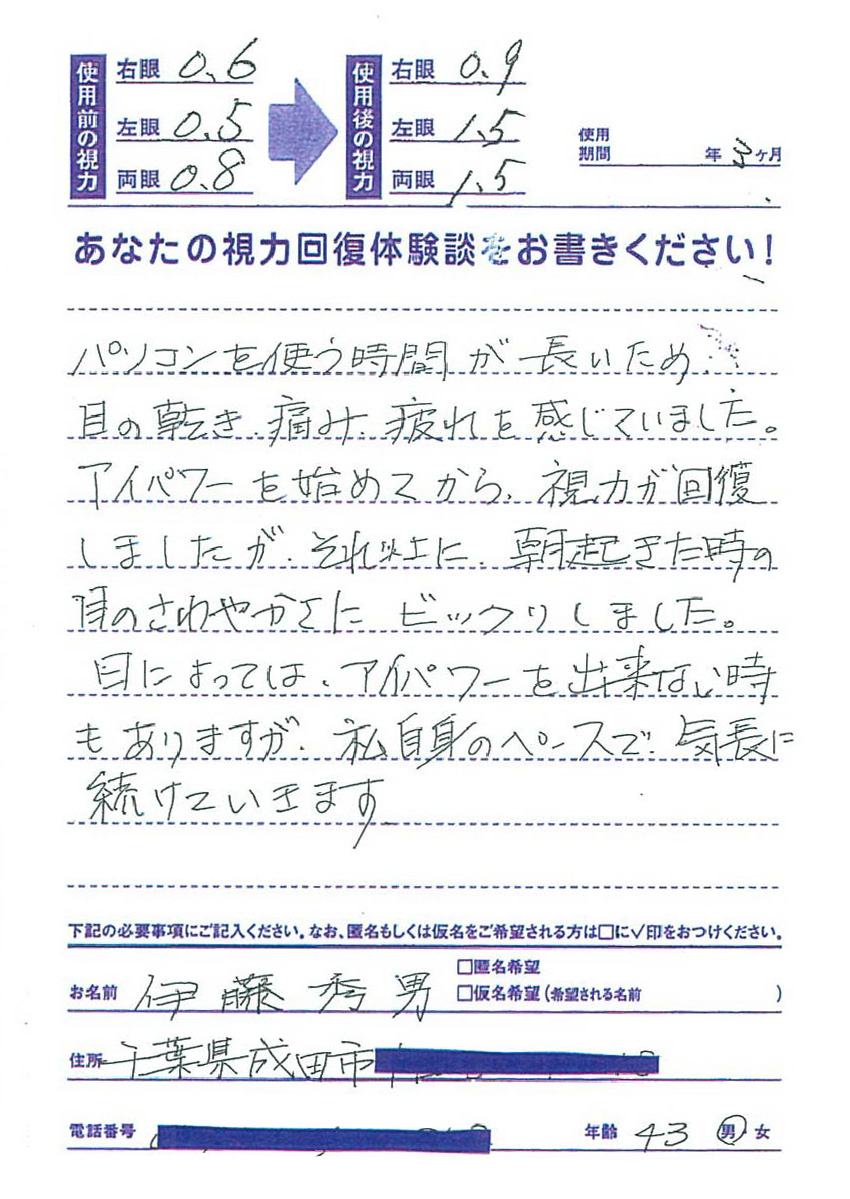 使用前の視力
右眼 0.6
左眼 0.5
両眼 0.8
使用後の視力
右眼 0.9
左眼 1.5
両眼 1.5
使用期間 年 3ヶ月
あなたの視力回復体験談をお書きください!
パソコンを使う時間が長いため
目の乾き、痛み、疲れを感じていました。
アイパワーを始めてから、視力が回復
しましたが、それ以上に、朝起きた時の
目のさわやかさにビックリしました。
日によっては、アイパワーを出来ない時
もありますが、私自身のペースで、気長に
続けていきます
下記の必要事項にご記入ください。なお、匿名もしくは仮名をご希望される方は□に✓印をおつけください。
□匿名希望
お名前 伊藤秀男 □仮名希望(希望される名前 )
住所 千葉県成田市
電話番号 年齢 43 男・女